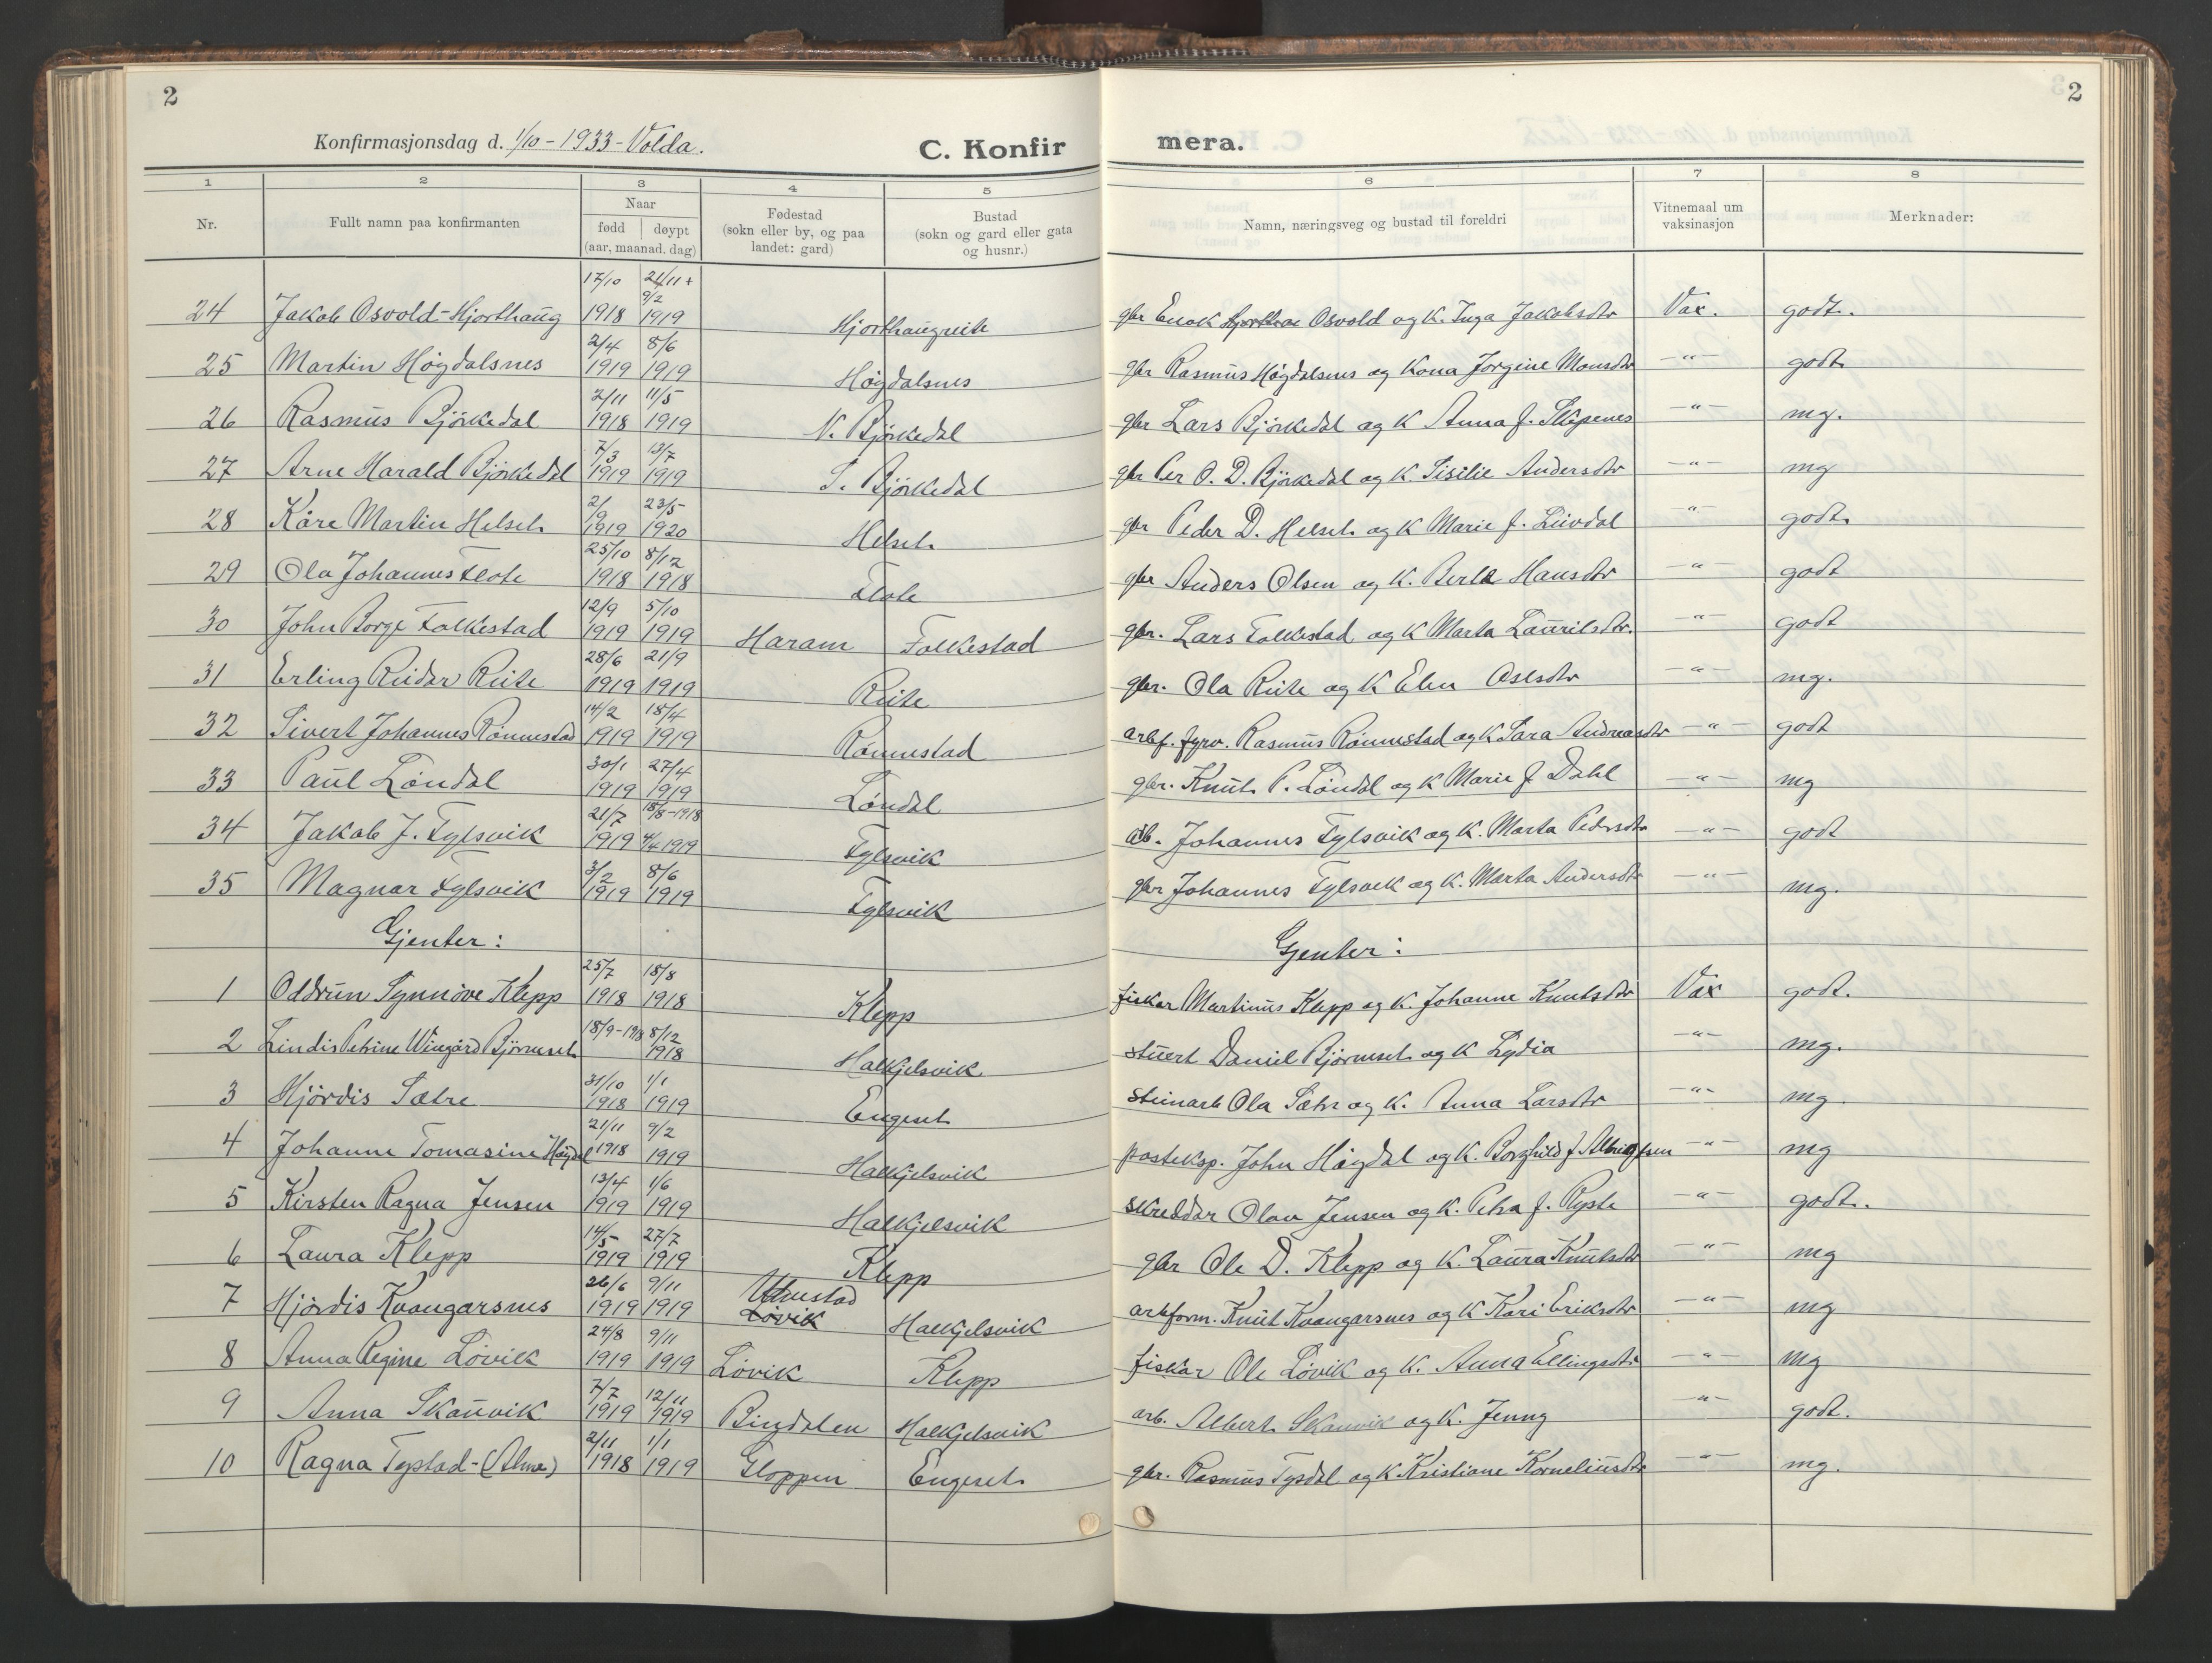 2
Konfirmasjonsdag d. 1/10 - 1933 - Volda.
C. Konfir mera.
2
1 2 3 4 5 6 7 8
Nr.
Fullt namn paa konfirmanten
Naar
fødd døypt
(aar, maanad, dag)
Fødestad
(sokn eller by, og paa
landet: gard)
Bustad
(sokn og gard eller gata
og husnr.)
Namn, næringsveg og bustad til foreldri
Vitnemaal um
vaksinasjon
Merknader:
17/10 21/11 +
9/2
24 Jakob Osvold-Hjorthaug 1918 1919 Hjorthaugreite gbr Enok Osvold og K. Inga Jakobsdtr Vax. godt.
2/4 8/6
25 Martin Høgdalsnes 1919 1919 Høgdalsnes gbr Rasmus Høgdalsnes og Kona Jørgine Monsdtr —"— godt
2/11 11/5
26 Rasmus Bjørkedal 1918 1919 N. Bjørkedal gbr Lars Bjørkedal og K Anna f. Skipenes —"— mg.
7/3 13/7
27 Arne Harald Bjørkedal 1919 1919 S. Bjørkedal gbr Per O. D. Bjørkedal og K. Sisilie Andersdtr —"— mg
2/9 23/5
28 Kåre Martin Helset 1919 1920 Helset gbr Peder D. Helset og K Marie f. Løvdal —"— godt
25/10 8/12
29 Ola Johannes Flote 1918 1918 Flote gbr Anders Olsen og K. Berte Hansdtr —"— godt
12/9 5/10
30 John Borge Folkestad 1919 1919 Haram Folkestad gbr. Lars Folkestad og K Marta Lauritsdtr. —"— godt
28/6 21/9
31 Erling Reidar Reite 1919 1919 Reite gbr. Ola Reite og K Elen —"— mg.
14/2 18/4
32 Sivert Johannes Rønnestad 1919 1919 Rønnestad arbf. fyrv. Rasmus Rønnestad og K Sara Andreasdtr —"— godt
30/1 27/4
33 Paul Løndal 1919 1919 Løndal gbr. Knut P. Løndal og K Marie f Dahl —"— mg
21/7 18/8-1918
34 Jakob J. Fylsvik 1919 4/4 1919 Fylsvik arb. Johannes Fylsvik og K. Marta Pedersdtr —"— godt
3/2 8/6
35 Magnar Fylsvik 1919 1919 Fylsvik gbr Johannes Fylsvik og K. Marta Andersdtr —"— mg.
Gjenter: Gjenter:
25/7 18/8
1 Oddrun Synnøve Klepp 1918 1918 Klepp fiskar Martinus Klepp og K. Johanne Knutsdtr Vax godt.
18/9-1918 8/12
2 Lindis Petrine Wingård Bjørneset 1918 Halkjelsvik stuert Daniel Bjørneset og K Lydia —"— mg.
31/10 1/1
3 Hjørdis Sætre 1918 1919 Engeset steinarb Ola Sætre og K. Anna Larsdtr —"— mg
21/11 9/2
4 Johanne Tomasine Høgdal 1918 1919 Halkjelsvik posteksp. John Høgdal og K. Borghild f Albrigtsen —"— mg
13/4 1/6
5 Kirsten Ragna Jensen 1919 1919 Halkjelsvik skreddar Olav Jensen og K. Petra f. Ryste —"— godt.
14/5 27/7
6 Laura Klepp 1919 1919 Klepp gbr Ole D. Klepp og K. Laura Knutsdtr —"— mg
26/6 9/11
7 Hjørdis Kvangarsnes 1919 1919 Løvik Halkjelsvik arbform. Knut Kvangarsnes og K Kari Eriksdtr —"— mg
24/8 9/11
8 Anna Regine Løvik 1919 1919 Løvik Klepp fiskar Ole Løvik og K. Anna Ellingsdtr —"— mg
7/7 12/11
9 Anna Skauvik 1919 1919 Bindalen Halkjelsvik arb. Albert Skauvik og K. Jenny —"— godt.
2/11 1/1
10 Ragna Tystad-(Alme) 1918 1919 Gloppen Engeset gbr. Rasmus Tysdal og K Kristiane Korneliusdtr —"— mg.